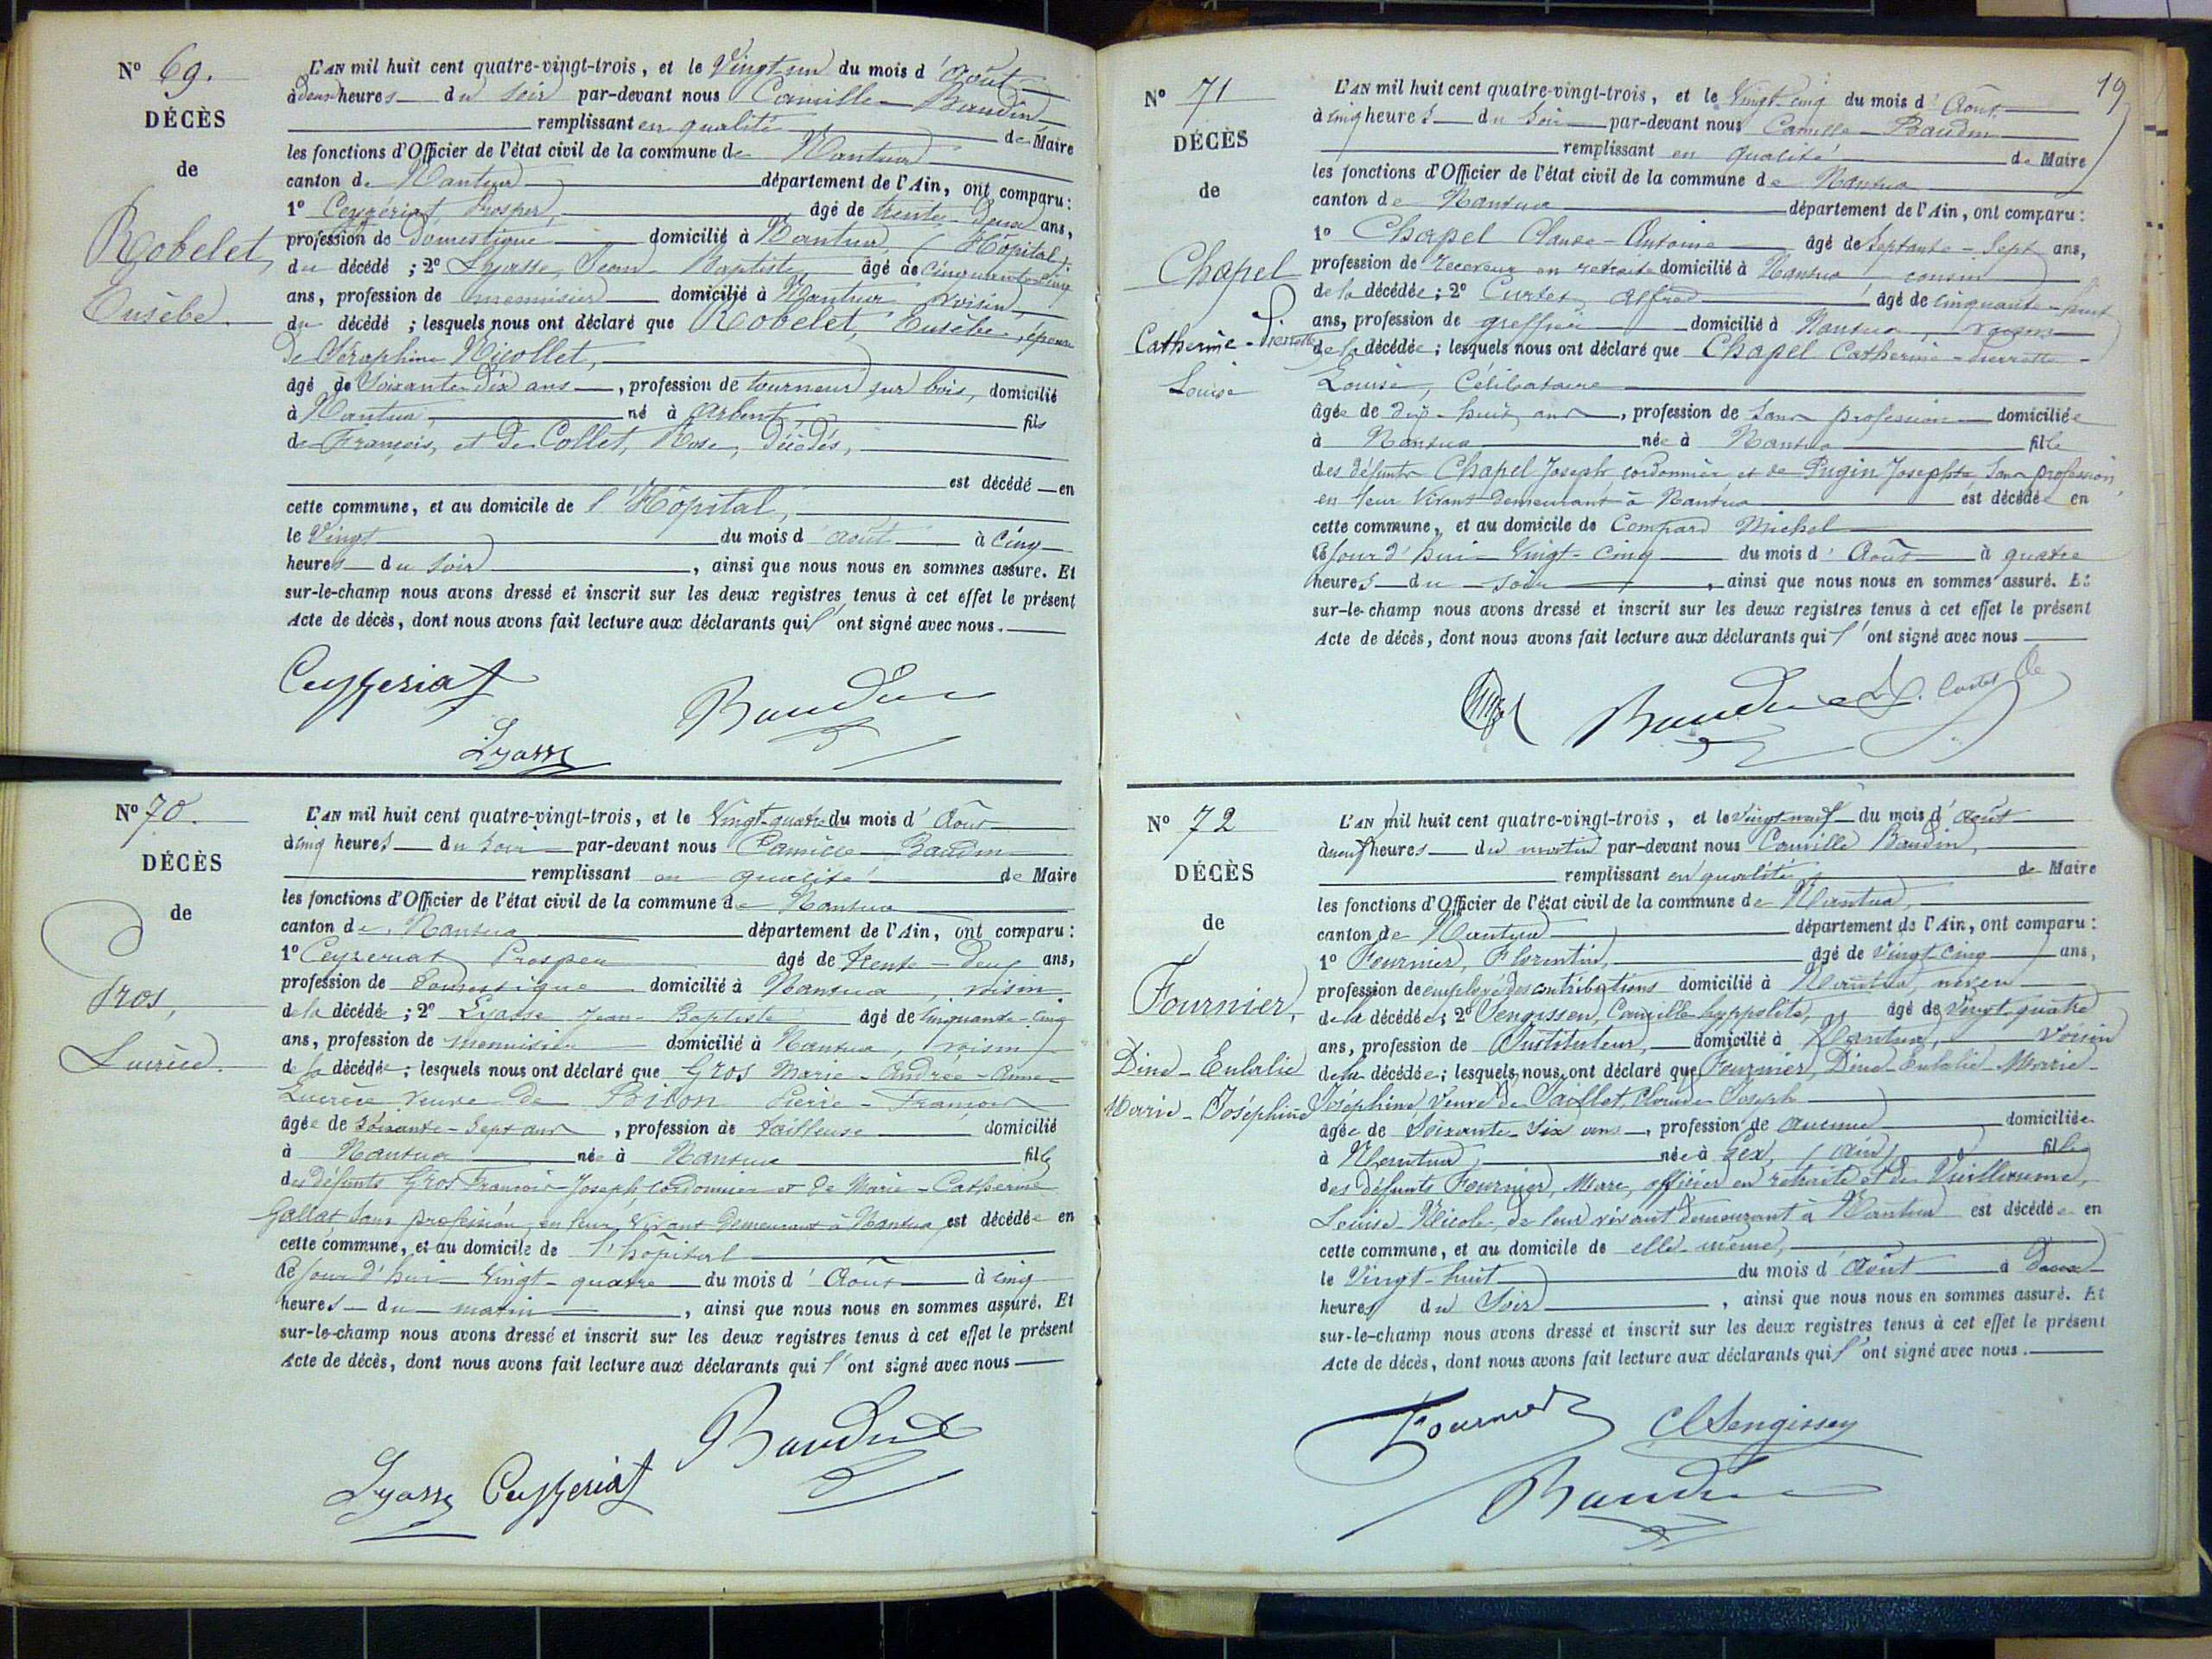 N° 69.
DÉCÈS
de
Robelet,
Eusèbe.
L'AN mil huit cent quatre-vingt-trois, et le Vingt-un du mois d'Août
à deux heures du soir par-devant nous Camille Baudin
remplissant en qualité de Maire
les fonctions d'Officier de l'état civil de la commune de Nantua
canton de Nantua département de l'Ain, ont comparu:
1° Ceyzériat, Prosper, âgé de trente-deux ans,
profession de Domestique domicilié à Nantua (Hôpital)
du décédé ; 2° Lyasse, Jean Baptiste, âgé de Cinquante-cinq
ans, profession de menuisier domicilié à Nantua, voisin
du décédé ; lesquels nous ont déclaré que Robelet, Eusèbe, époux
de Séraphine Nicollet,
âgé de Soixante-Dix ans, profession de tourneur sur bois, domicilié
à Nantua, né à Arbent, fils
de François, et de Collet, Rose, Décédés,
est décédé en
cette commune, et au domicile de l'Hôpital,
le Vingt du mois d'août à Cinq
heures du soir, ainsi que nous nous en sommes assuré. Et
sur-le-champ nous avons dressé et inscrit sur les deux registres tenus à cet effet le présent
Acte de décès, dont nous avons fait lecture aux déclarants qui l'ont signé avec nous.
Ceyzeriat Baudin
Lyasse
N° 70.
DÉCÈS
de
Gros,
Lucrèce.
L'AN mil huit cent quatre-vingt-trois, et le Vingt-quatre du mois d'Août
à cinq heures du soir par-devant nous Camille Baudin
remplissant en qualité de Maire
les fonctions d'Officier de l'état civil de la commune de Nantua
canton de Nantua département de l'Ain, ont comparu:
1° Ceyzeriat Prosper âgé de trente-deux ans,
profession de Domestique domicilié à Nantua, voisin
de la décédée ; 2° Lyasse Jean-Baptiste âgé de Cinquante-cinq
ans, profession de menuisier domicilié à Nantua, voisin
de la décédée ; lesquels nous ont déclaré que Gros Marie-Andrée-Anne-
Lucrèce veuve de Pierre-François
âgée de Soixante-Sept ans, profession de tailleuse domicilié
à Nantua née à Nantua fille
des défunts Gros François-Joseph cordonnier et de Marie-Catherine
Gallat sans profession, en leur vivant demeurant à Nantua est décédée en
cette commune, et au domicile de l'hôpital
ce jour d'hui Vingt-quatre du mois d'Août à cinq
heures du matin, ainsi que nous nous en sommes assuré. Et
sur-le-champ nous avons dressé et inscrit sur les deux registres tenus à cet effet le présent
Acte de décès, dont nous avons fait lecture aux déclarants qui l'ont signé avec nous
Baudin
Lyasse Ceyzeriat
19
N° 71
DÉCÈS
de
Chapel
Catherine-Pierrette
Louise
L'AN mil huit cent quatre-vingt-trois, et le Vingt-cinq du mois d'Août
à cinq heures du soir par-devant nous Camille Baudin
remplissant en qualité de Maire
les fonctions d'Officier de l'état civil de la commune de Nantua
canton de Nantua département de l'Ain, ont comparu:
1° Chapel Claude-Antoine âgé de septante-sept ans,
profession de receveur en retraite domicilié à Nantua cousin
de la décédée ; 2° Curtet Alfred âgé de cinquante-huit
ans, profession de greffier domicilié à Nantua, voisin
de la décédée ; lesquels nous ont déclaré que Chapel Catherine-Pierrette-
Louise, Célibataire
âgée de dix-huit ans, profession de sans profession domiciliée
à Nantua née à Nantua fille
des défunts Chapel Joseph cordonnier et de Pugin Josephte sans profession,
en leur vivant demeurant à Nantua est décédée en
cette commune, et au domicile de Compard Michel
ce jour d'hui Vingt-cinq du mois d'Août à quatre
heures du soir, ainsi que nous nous en sommes assuré. Et
sur-le-champ nous avons dressé et inscrit sur les deux registres tenus à cet effet le présent
Acte de décès, dont nous avons fait lecture aux déclarants qui l'ont signé avec nous
Baudin
N° 72
DÉCÈS
de
Fournier,
Dine-Eulalie
Marie-Joséphine
L'AN mil huit cent quatre-vingt-trois, et le Vingt-neuf du mois d'Août
à neuf heures du matin par-devant nous Camille Baudin,
remplissant en qualité de Maire
les fonctions d'Officier de l'état civil de la commune de Nantua,
canton de Nantua département de l'Ain, ont comparu:
1° Fournier, Florentin, âgé de Vingt Cinq ans,
profession de employé des contributions domicilié à Nantua, neveu
de la décédée ; 2° Camille hyppolite, âgé de Vingt quatre
ans, profession de Instituteur, domicilié à Nantua, Voisin
de la décédée ; lesquels nous ont déclaré que Fournier, Dine-Eulalie-Marie-
Joséphine, Veuve de Claude Joseph
âgée de Soixante-six ans, profession de aucune domiciliée
à Nantua née à Gex, (Ain) fille
des défunts Fournier, Marc, officier en retraite et de Vuillaume,
Louise Nicole, de leur vivant demeurant à Nantua est décédée en
cette commune, et au domicile de elle-même,
le Vingt-huit du mois d'Août à Deux
heures du Soir, ainsi que nous nous en sommes assuré. Et
sur-le-champ nous avons dressé et inscrit sur les deux registres tenus à cet effet le présent
Acte de décès, dont nous avons fait lecture aux déclarants qui l'ont signé avec nous.
Fournier
Baudin